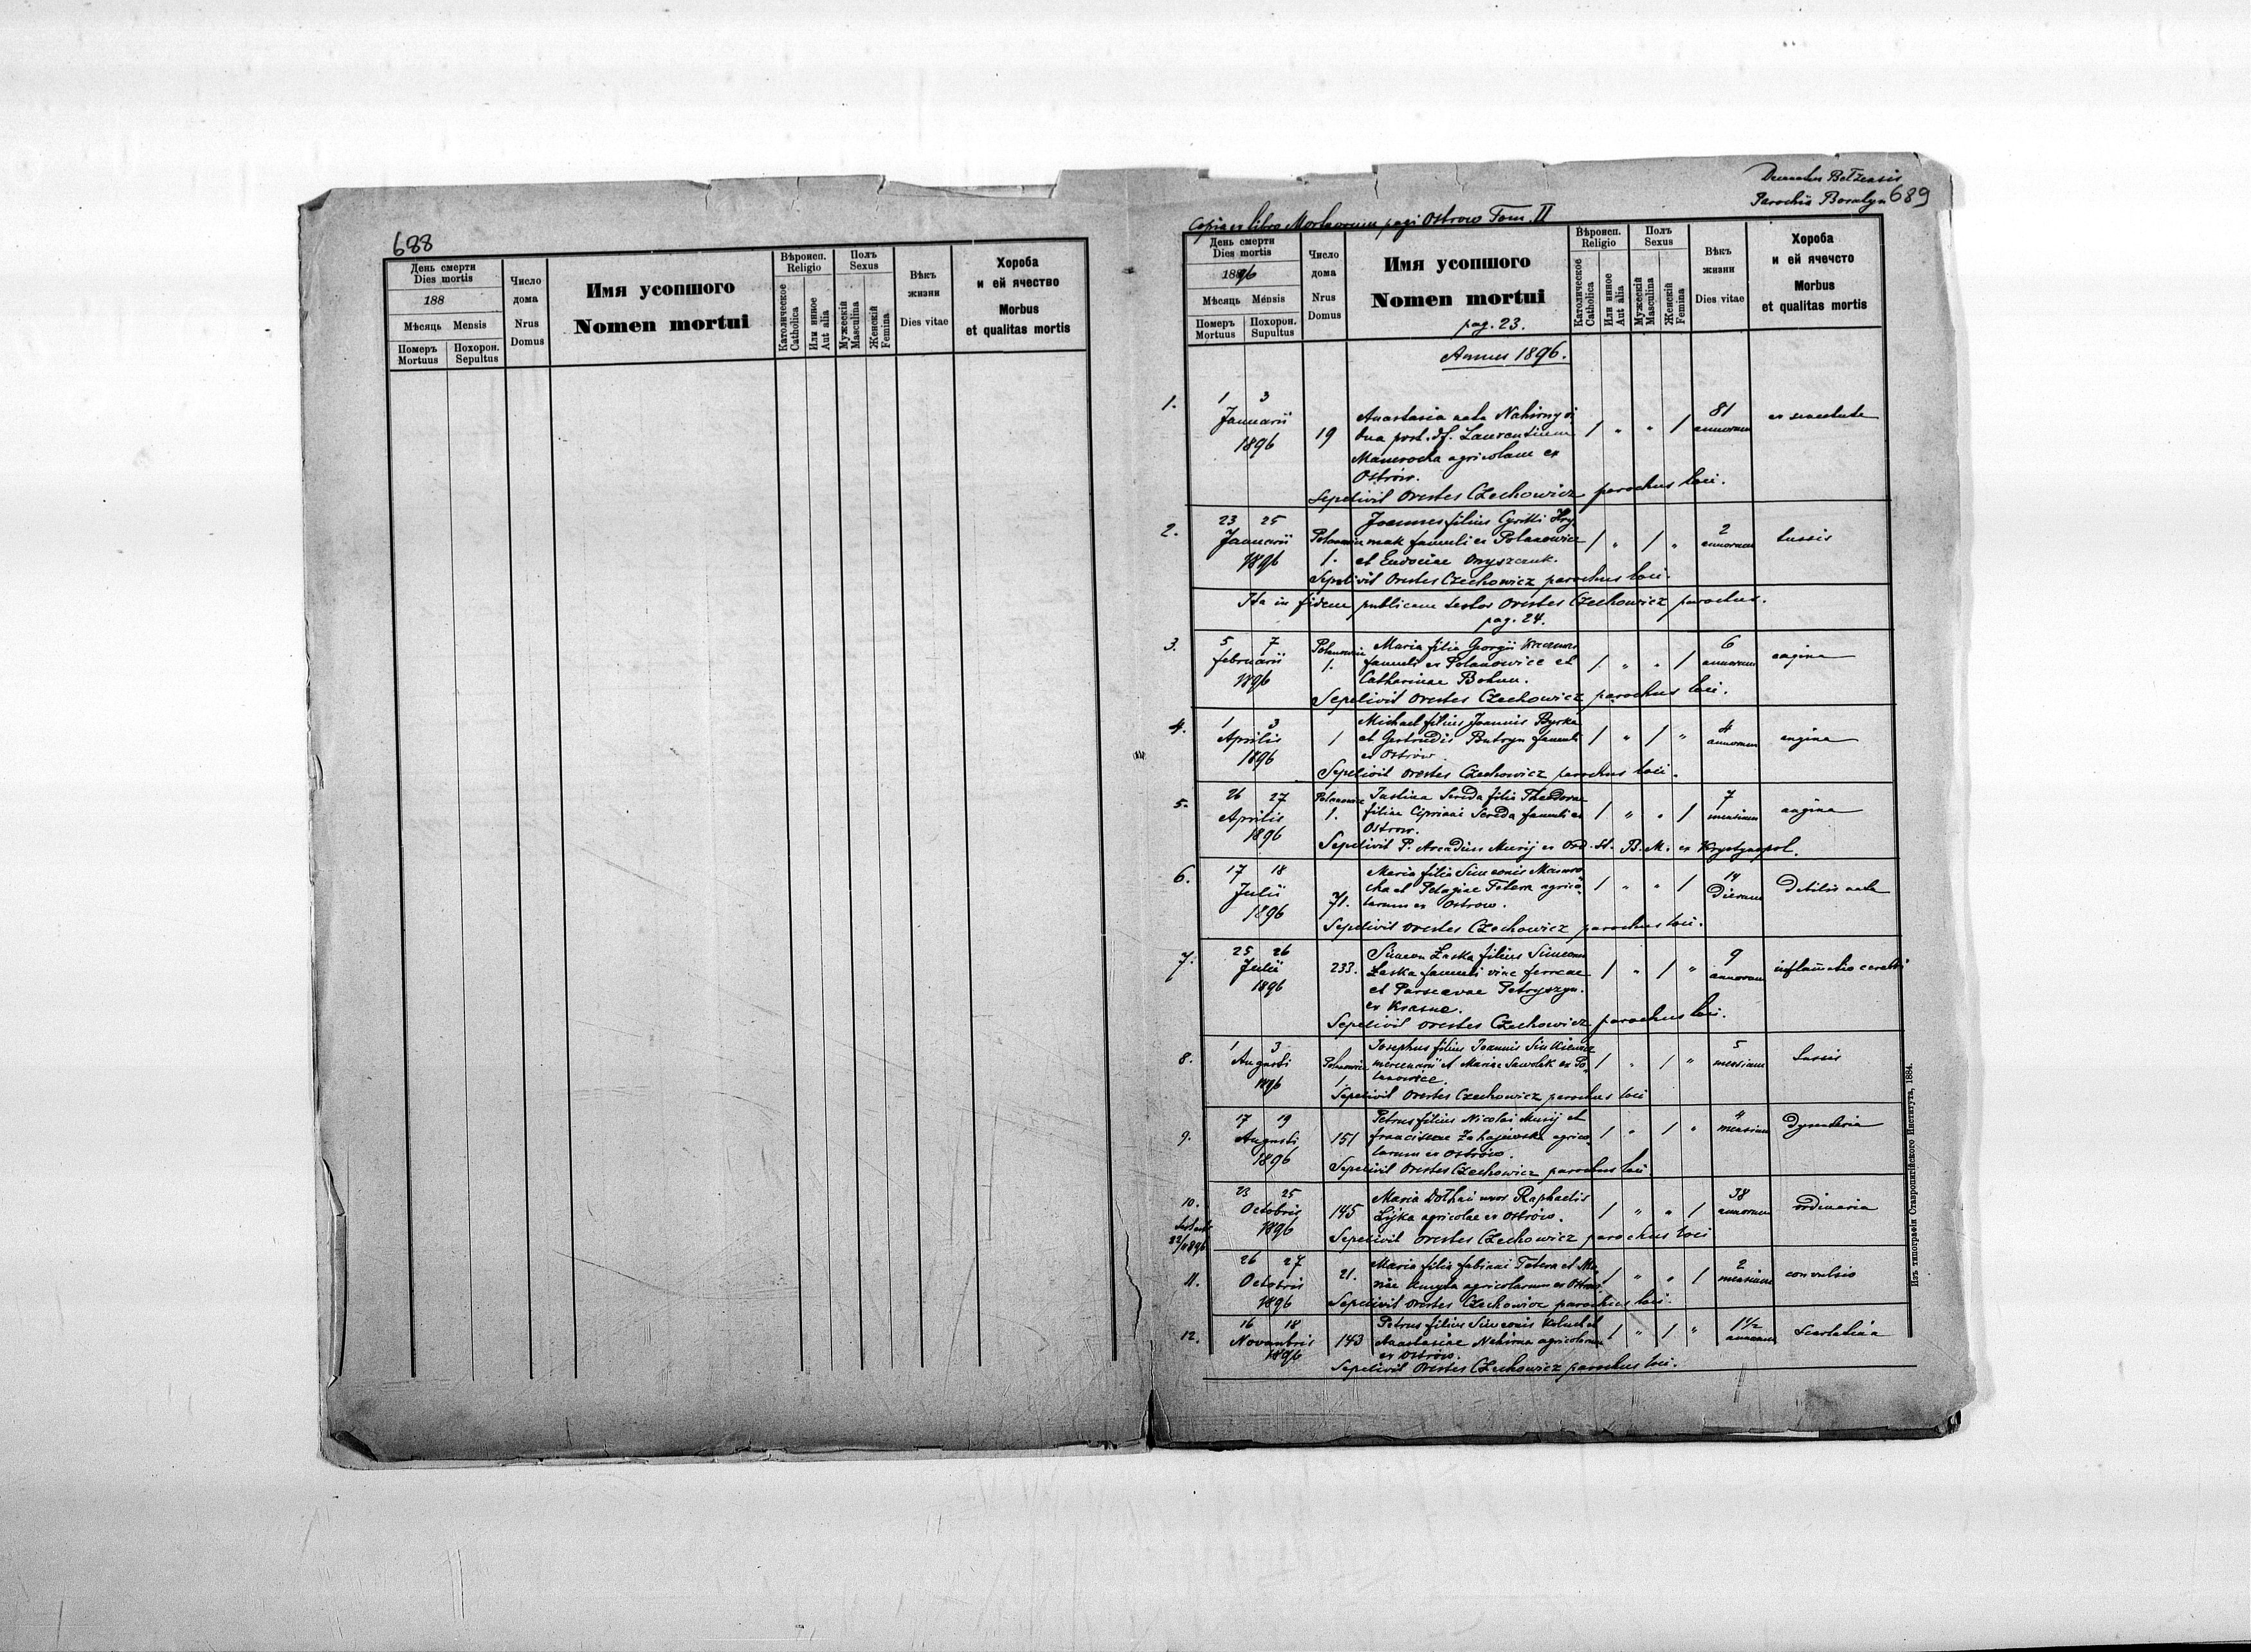 688
День смерти
Dies mortis
188
Мѣсяць Mensis
Померъ
Mortuus
Похорон.
Sepultus
Число
дома
Nrus
Domus
Имя усопшого
Nomen mortui
Вѣроисп.
Religio
Католическое
Catholica
Или иное
Aut alia
Полъ
Sexus
Мужескій
Masculina
Женскій
Femina
Вѣкъ
жизни
Dies vitae
Хороба
и ей ячество
Morbus
et qualitas mortis
Decanatus Bełzensis
Parochia 689
Copia ex libro Mortuorum pagi Ostrow Tom. II
День смерти
Dies mortis
1896
Мѣсяць Mensis
Померъ
Mortuus
Похорон.
Supultus
Число
дома
Nrus
Domus
Имя усопшого
Nomen mortui
pag. 23.
Вѣроисп.
Religio
Католическое
Catholica
Или иное
Aut alia
Полъ
Sexus
Мужескій
Masculina
Женскій
Femina
Вѣкъ
жизни
Dies vitae
Хороба
и ей ячечсто
Morbus
et qualitas mortis
Annus 1896.
1. 1 3 Januarii 1896 19 Anastasia nata Nahirny vi-
dua post. df. Laurentium / " " / 81 annorum ex senectute
Mamrocha agricolam ex
Ostrów.
Sepelivit Orestes Czechowicz parochus loci.
2. 23 25 Januarii 1896 Polanowice 1. Joannes filius Cyrilli Hry-
mak famuli ex Polanowice / " / " 2 annorum tussis
et Eudociae Onyszczuk.
Sepelivit Orestes Czechowicz parochus loci.
Ita in fidem publicam testor Orestes Czechowicz parochus.
pag. 24.
3. 5 7 Februarii 1896 Polanowice 1. Maria filia Georgii
famuli ex Polanowice et / " " / 6 annorum angina
Catharinae Bohun.
Sepelivit Orestes Czechowicz parochus loci.
4. 1 3 Aprilis 1896 1 Michael filius Joannis Byrka
et Gertrudis Butryn famuli / " / " 4 annorum angina
ex Ostrów
Sepelivit Orestes Czechowicz parochus loci.
5. 26 27 Aprilis 1896 Polanowice 1. Justina Sereda filia Theodorae
filiae Cipriani Sereda famuli ex / " " / 7 mensium angina
Ostrow.
Sepelivit P. Arcadius Muryj ex Ord. St. B. M. ex Krystynopol.
6. 17 18 Julii 1896 71. Maria filia Simeonis Mamro-
cha et Pelagiae Tetera agrico- / " " / 14 dierum debilis nata
larum ex Ostrow.
Sepelivit Orestes Czechowicz parochus loci.
7. 25 26 Julii 1896 233. Simeon Laska filius Simeonis
Laska famuli viae ferreae / " / " 9 annorum inflamatio cerebri
et Parscevae Petryszyn
ex Krasne.
Sepelivit Orestes Czechowicz parochus loci.
8. 1 3 Augusti 1896 Polanowice 1. Josephus filius Joannis Sinkiewicz
mercenarii et Mariae Sawolak ex Po- / " / " 5 mensium tussis
lanowice.
Sepelivit Orestes Czechowicz parochus loci
9. 17 19 Augusti 1896 151 Petrus filius Nicolai Muryj et
Franciscae Zahajewska agrico- / " / " 4 mensium dysenteria
larum ex Ostrów.
Sepelivit Orestes Czechowicz parochus loci.
10. 23 25 Octobris 1896 145 Maria Dołhai uxor Raphaelis
Lyka agricolae ex Ostrów. / " " / 38 annorum ordinaria
Sepelivit Orestes Czechowicz parochus loci
11. 26 27 Octobris 1896 21. Maria filia Fabiani Tetera et Ma-
riae Kmyta agricolarum ex Ostrow. / " " / 2 mensium convulsio
Sepelivit Orestes Czechowicz parochus loci.
12. 16 18 Novembris 1896 143 Petrus filius Simeonis
Anastasiae Nahirna agricolarum / " / " 1 1/2 scarlatina
ex Ostrów.
Sepelivit Orestes Czechowicz parochus loci.
Изъ типографіи Ставропигійского Института, 1884.